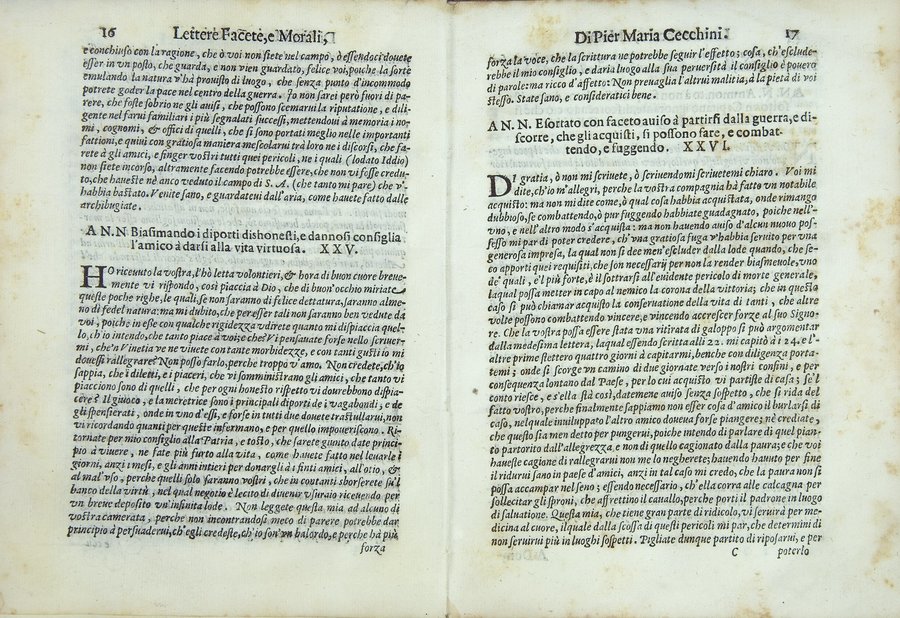 16 Lettere Facete, e Morali,
e conchiuso con la ragione, che ò voi non siete nel campo, ò essendoci douete
esser in un posto, che guarda, e non vien guardato, felice voi, poiche la sorte
emulando la natura v'hà prouisto di luogo, che senza punto d'incommodo
potrete goder la pace nel centro della guerra. Io non sarei però fuori di pa-
rere, che foste sobrio ne gli auisi, che possono scemarui la riputatione, e dili-
gente nel farui familiari i più segnalati successi, mettendoui à memoria i no-
mi, cognomi, & offici di quelli, che si sono portati meglio nelle importanti
fattioni, e quiui con gratiosa maniera mescolarui trà loro ne i discorsi, che fa-
rete à gli amici, e finger vostri tutti quei pericoli, ne i quali (lodato Iddio)
non siete incorso, altramente facendo potrebbe essere, che non vi fosse credu-
to, che haueste nè anco veduto il campo di S. A. (che tanto mi pare) che v'-
habbia bastato. Venite sano, e guardateui dall'aria, come hauete fatto dalle
archibugiate.
A N. N Biasimando i diporti dishonesti, e dannosi consiglia
l'amico à darsi alla vita virtuosa. XXV.
HO riceuuto la vostra, l'hò letta volontieri, & hora di buon cuore breue-
mente vi rispondo, così piaccia à Dio, che di buon'occhio miriate
queste poche righe, le quali se non saranno di felice dettatura, saranno alme-
no di fedel natura: ma mi dubito, che per esser tali non saranno ben vedute da
voi, poiche in esse con qualche rigidezza vdirete quanto mi dispiaccia quel-
lo, ch'io intendo, che tanto piace à voi; e che? Vi pensauate forse nello scriuer-
mi, che'n Vinetia ve ne viuete con tante morbidezze, e con tanti gusti io mi
douessi rallegrare? Non posso farlo, perche troppo v'amo. Non credete, ch'io
sappia, che i diletti, e i piaceri, che vi somministrano gli amici, che tanto vi
piacciono sono di quelli, che per ogni honesto rispetto vi dourebbono dispia-
cere? Il giuoco, e la meretrice sono i principali diporti de i vagabondi, e de
gli spensierati, onde in vno d'essi, e forse in tutti due douete trastullarui, non
vi ricordando quanti per queste infermano, e per quello impoueriscono. Ri-
tornate per mio consiglio alla Patria, e tosto, che sarete giunto date princi-
pio à viuere, ne fate più furto alla vita, come hauete fatto nel leuarle i
giorni, anzi i mesi, e gli anni intieri per donargli à i finti amici, all'otio, & al
mal'vso, perche quelli solo saranno vostri, che in contanti sborserete su'l
banco della virtù, nel qual negotio è lecito di diuenir vsuraio riceuendo per
vn breue deposito vn'infinita lode. Non leggete questa mia ad alcuno di
vostra camerata, perche non incontrandosi meco di parere potrebbe dar
principio à persuaderui, ch'egli credeste, ch'io son'vn balordo, e perche hà più
forza
Di Pier Maria Cecchini. 17
forza la voce, che la scrittura ne potrebbe seguir l'effetto; cosa, ch'esclude-
rebbe il mio consiglio, e daria luogo alla sua peruersità il consiglio è pouero
di parole: ma ricco d'affetto: Non preuaglia l'altrui malitia, à la pietà di voi
stesso. State sano, e consideratici bene.
A N. N. Esortato con faceto auiso à partirsi dalla guerra, e di-
scorre, che gli acquisti, si possono fare, e combat-
tendo, e fuggendo. XXVI.
DI gratia, ò non mi scriuete, ò scriuendomi scriuetemi chiaro. Voi mi
dite, ch'io m'allegri, perche la vostra compagnia hà fatto vn notabile
acquisto: ma non mi dite come, ò qual cosa habbia acquistata, onde rimango
dubbioso, se combattendo, ò pur fuggendo habbiate guadagnato, poiche nell'v-
no, e nell'altro modo s'acquista: ma non hauendo auiso d'alcun nuouo pos-
sesso mi par di poter credere, ch'vna gratiosa fuga v'habbia seruito per vna
generosa impresa, la qual non si dee men'escluder dalla lode quando, che se-
co apporti quei requisiti, che son necessarij per non la render biasmeuole, vno
de' quali, e'l più forte, è il sottrarsi all'euidente pericolo di morte generale,
la qual possa metter in capo al nemico la corona della vittoria; che in questo
caso si può chiamar acquisto la conseruatione della vita di tanti, che altre
volte possono combattendo vincere, e vincendo accrescer forze al suo Signo-
re. Che la vostra possa essere stata vna ritirata di galoppo si può argomentar
dalla medesima lettera, la qual essendo scritta alli 22. mi capitò à i 24. e l'al-
tre prime stettero quattro giorni à capitarmi, benche con diligenza porta-
temi; onde si scorge vn camino di due giornate verso i nostri confini, e per
consequenza lontano dal Paese, per lo cui acquisto vi partiste di casa; se'l
conto riesce, e s'ella stà così, datemene auiso senza sospetto, che si rida del
fatto vostro, perche finalmente sappiamo non esser cosa d'amico il burlarsi di
caso, nelquale inuiluppato l'altro amico doueua forse piangere; nè crediate,
che questo sia men detto per pungerui, poiche intendo di parlare di quel pian-
to partorito dall'allegrezza e non di quello cagionato dalla paura; e che voi
haueste cagione di rallegrarui non me lo negherete; hauendo hauuto per fine
il ridurui sano in paese d'amici, anzi in tal caso mi credo, che la paura non si
possa accampar nel seno; essendo necessario, ch'ella corra alle calcagna per
sollecitar gli sproni, che affrettino il cauallo, perche porti il padrone in luogo
di saluatione. Questa mia, che tiene gran parte di ridicolo, vi seruirà per me-
dicina al cuore, il quale dalla scossa di questi pericoli mi par, che determini di
non seruirui più in luoghi sospetti. Pigliate dunque partito di riposarui, e per
C poterlo